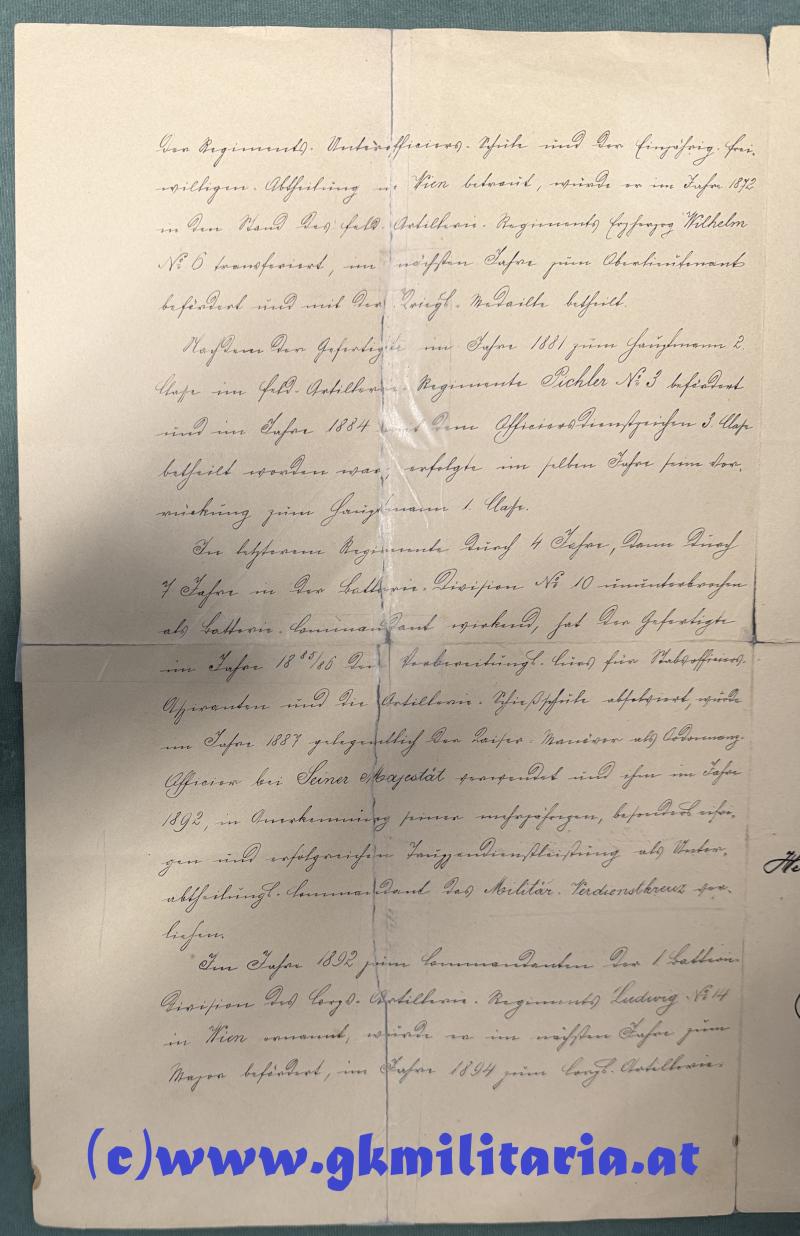 der Regiments-Unterofficiers-Schule und der Einjährig-frei-
willigen-Abtheilung in Wien betraut, wurde er im Jahre 1872
in den Stand des Feld-Artillerie-Regiments Erzherzog Wilhelm
No 6 transferiert, im nächsten Jahre zum Oberlieutenant
befördert und mit der Kriegs-Medaille betheilt.
Nachdem der Gefertigte im Jahre 1881 zum Hauptmann 2.
Classe im Feld-Artillerie-Regimente Pichler No 3 befördert
und im Jahre 1884 mit dem Officiersdienstzeichen 3. Classe
betheilt worden war, erfolgte im selben Jahre seine Vor-
rückung zum Hauptmann 1. Classe.
In letzterem Regimente durch 4 Jahre, dann durch
7 Jahre in der Batterie-Division No 10 ununterbrochen
als Batterie-Commandant wirkend, hat der Gefertigte
im Jahre 1885/86 den Vorbereitungs-Curs für Stabsofficiers-
Aspiranten und die Artillerie-Schießschule absolviert, wurde
im Jahre 1887 gelegentlich der Kaiser-Manöver als Ordonnanz-
Officier bei Seiner Majestät verwendet und ihm im Jahre
1892, in Anerkennung seiner mehrjährigen, besonders eifri-
gen und erfolgreichen Truppendienstleistung als Unter-
abtheilungs-Commandant das Militär-Verdienstkreuz ver-
liehen.
Im Jahre 1892 zum Commandanten der 1 Batterie-
Division des Corps-Artillerie-Regiments Ludwig No 14
in Wien ernannt, wurde er im nächsten Jahre zum
Major befördert, im Jahre 1894 zum Corps-Artillerie-
(c)www.gkmilitaria.at